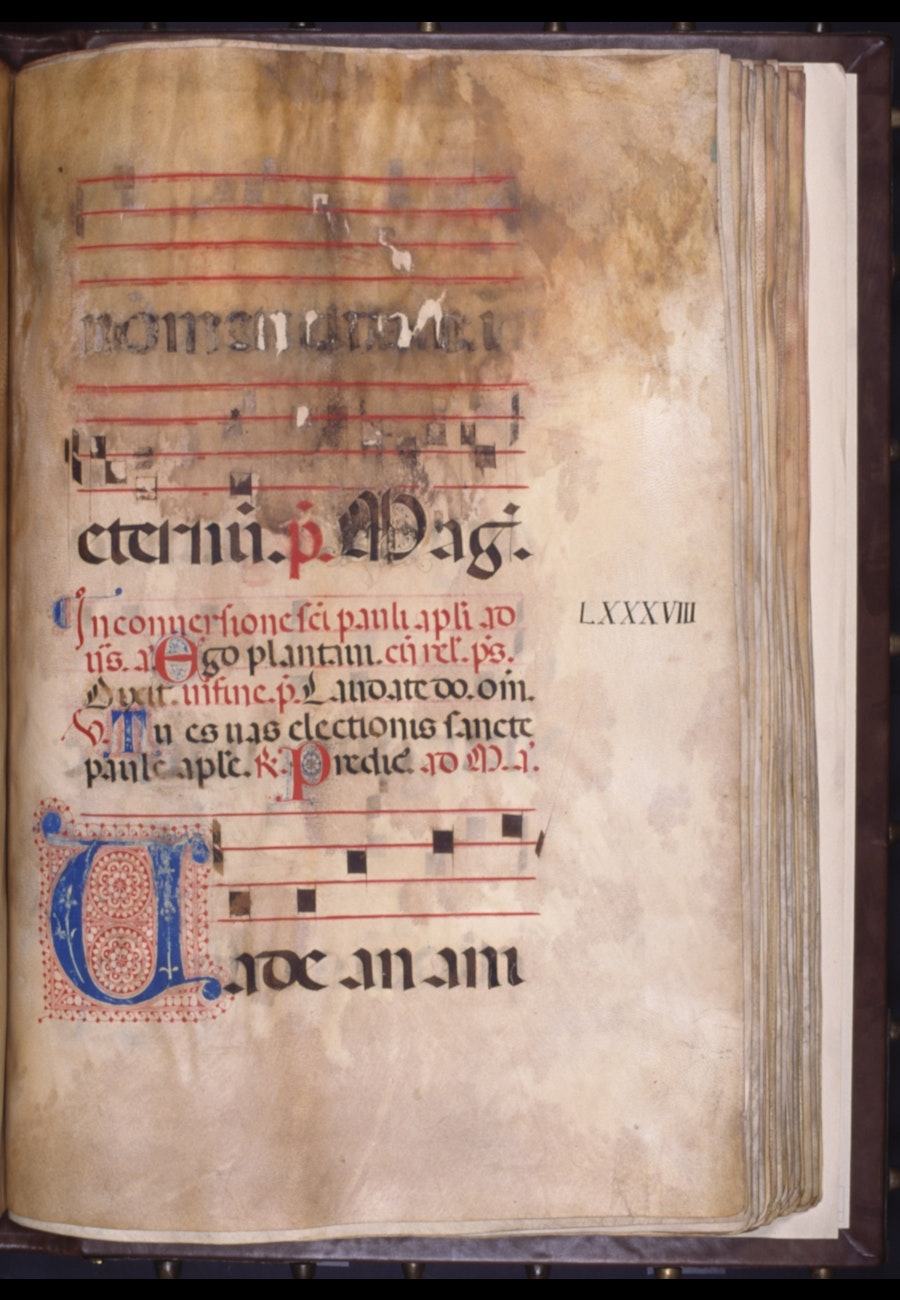 nomen
eternū. p̄. Mag̅.
In conversione sc̄i pauli apl̄i ad
us̄. a. Ego plantavi. cū rel̄. ps̄.
Dixit. in fine. p̄. Laudate do. om̄.
V. Tu es vas electionis sancte
paule apl̄e. R. Predic̄. ad M. a.
LXXXVIII
Vade anani